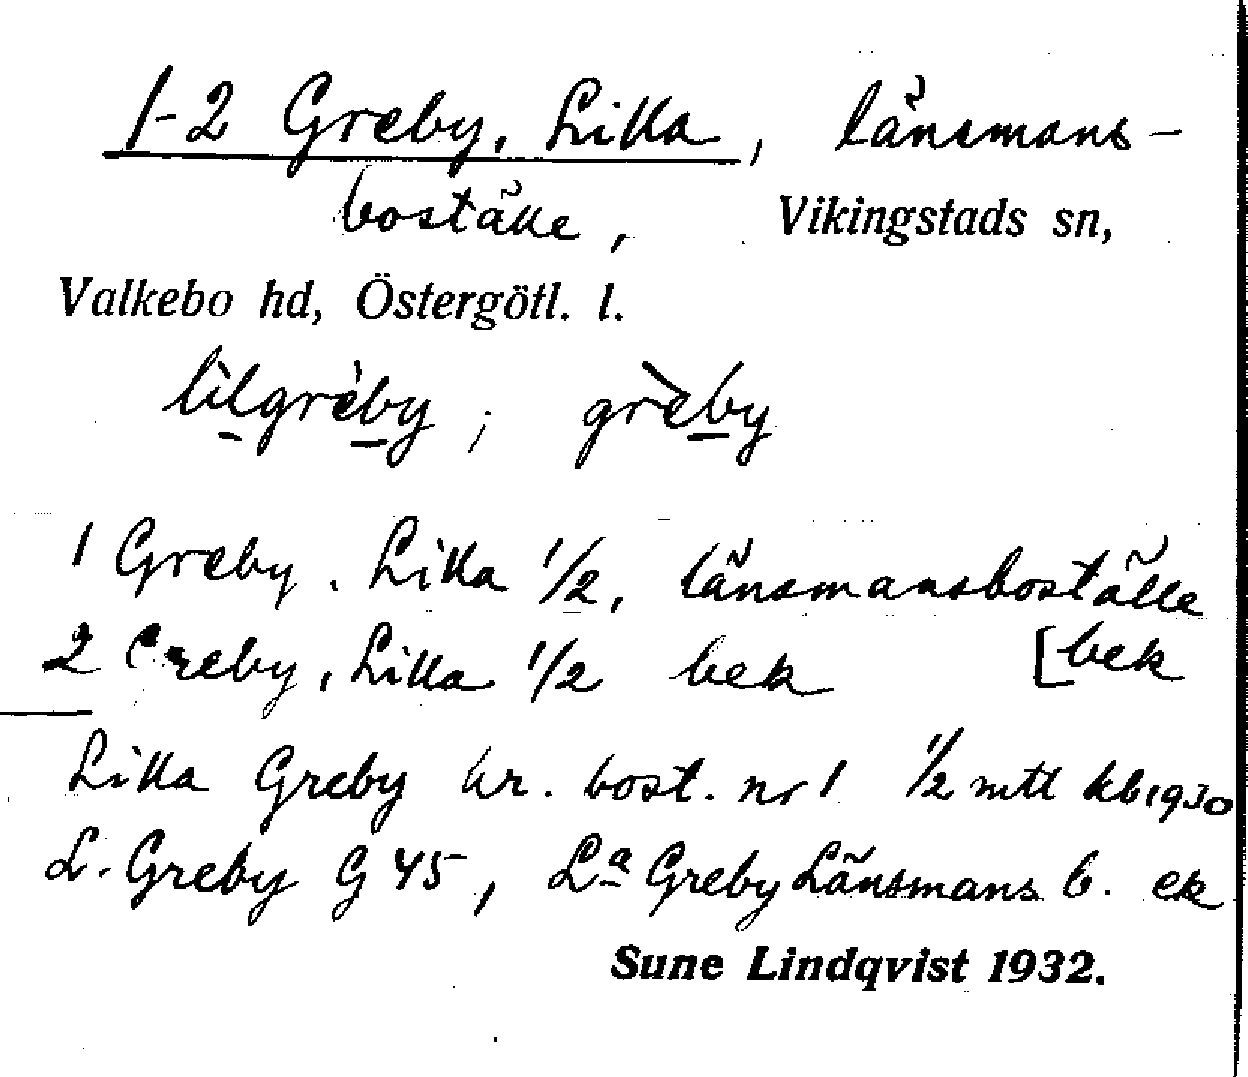 1-2 Greby, Lilla, länsmans-
boställe, Vikingstads sn,
Valkebo hd, Östergötl. l.
lìlgrèby; grèby
1 Greby, Lilla 1/2, länsmansboställe
2 Greby, Lilla 1/2 bek [bek
Lilla Greby kr. bost. nr 1 1/2 mtl kb 1930
L. Greby G 45, La Greby Länsmans b. ek
Sune Lindqvist 1932.